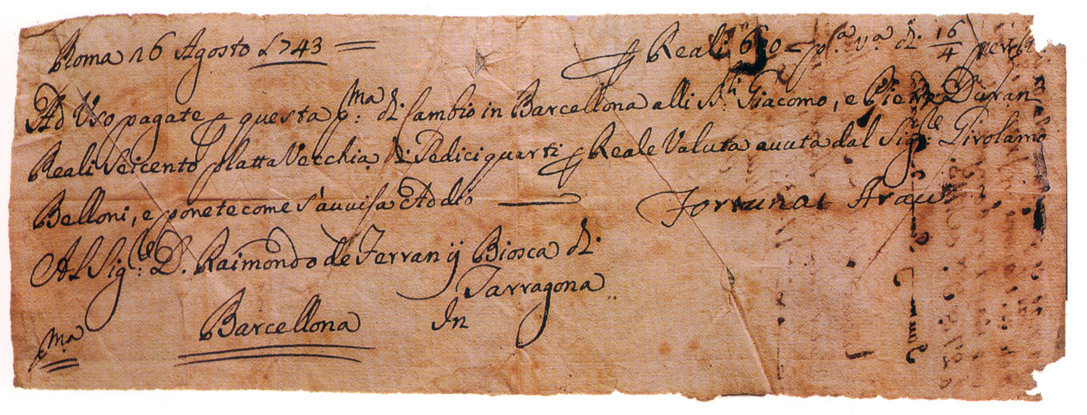 Roma 16 Agosto 1743 Reali 600 p.ª v.ª di 16/4 per R.
Ad Uso pagate p questa p.ma di Cambio in Barcellona alli S.ri Giacomo, e Pietro Duran
Reali Seicento platta Vecchia di Sedici quarti p Reale Valuta avuta dal Sig.re Girolamo
Belloni, e ponete come s'avvisa Addio Fortunat Arau
Al Sig.re D. Raimondo de Ferran ij Biosca di
Tarragona
p.ma Barcellona In